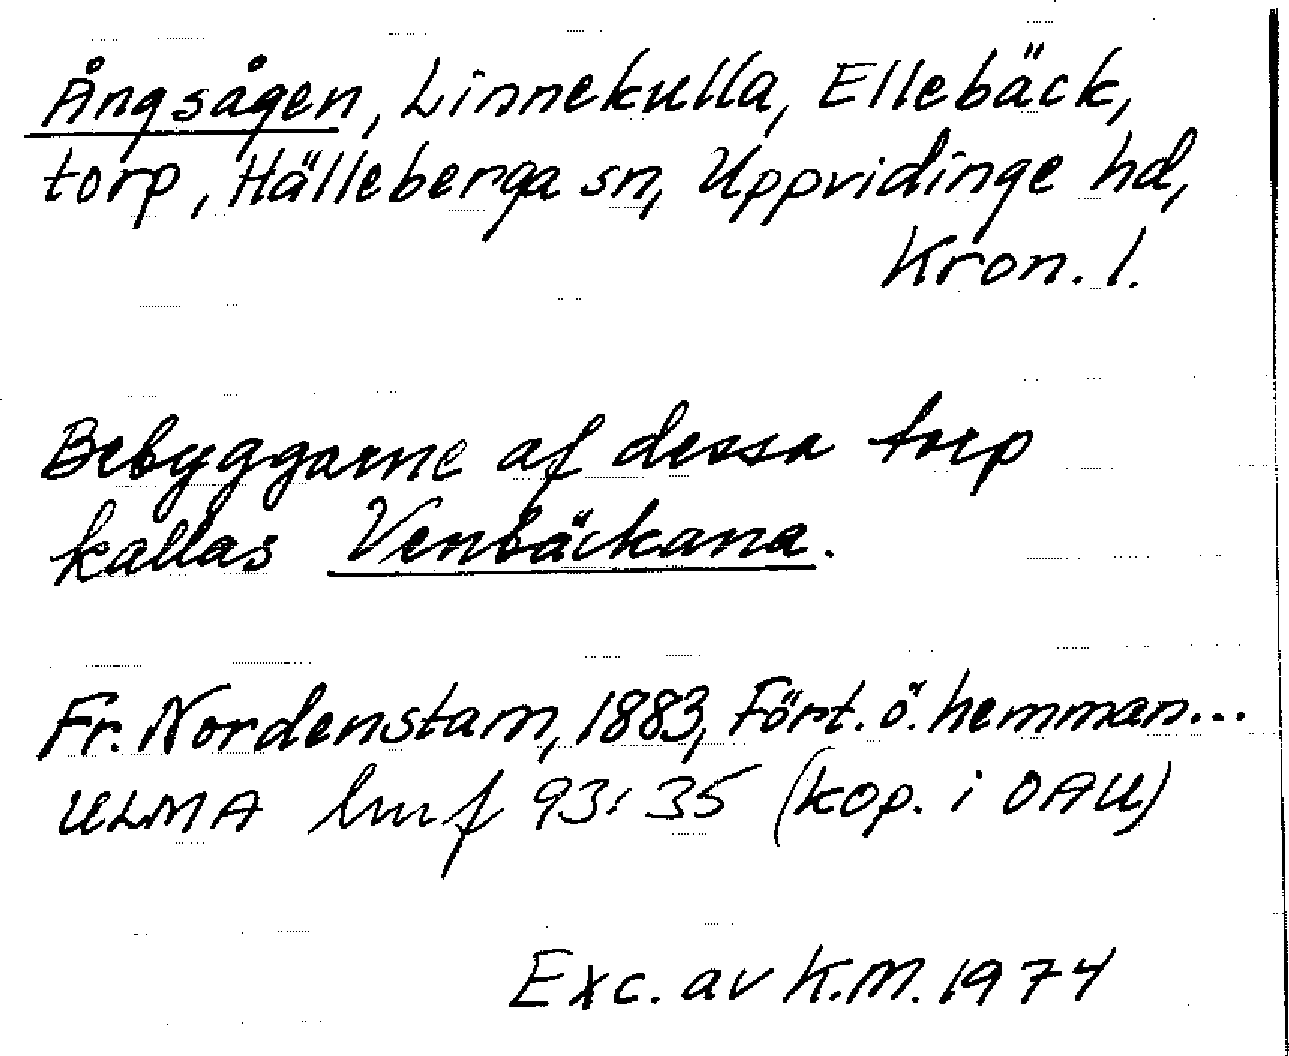 Ångsågen, Linnekulla, Ellebäck,
torp, Hälleberga sn, Uppvidinge hd,
Kron. l.
Bebyggarne af dessa torp
kallas Venbäckana.
Fr. Nordenstam, 1883, Fört. ö. hemman...
ULMA hmf 93:35 (kop. i OAU)
Exc. av K.M. 1974